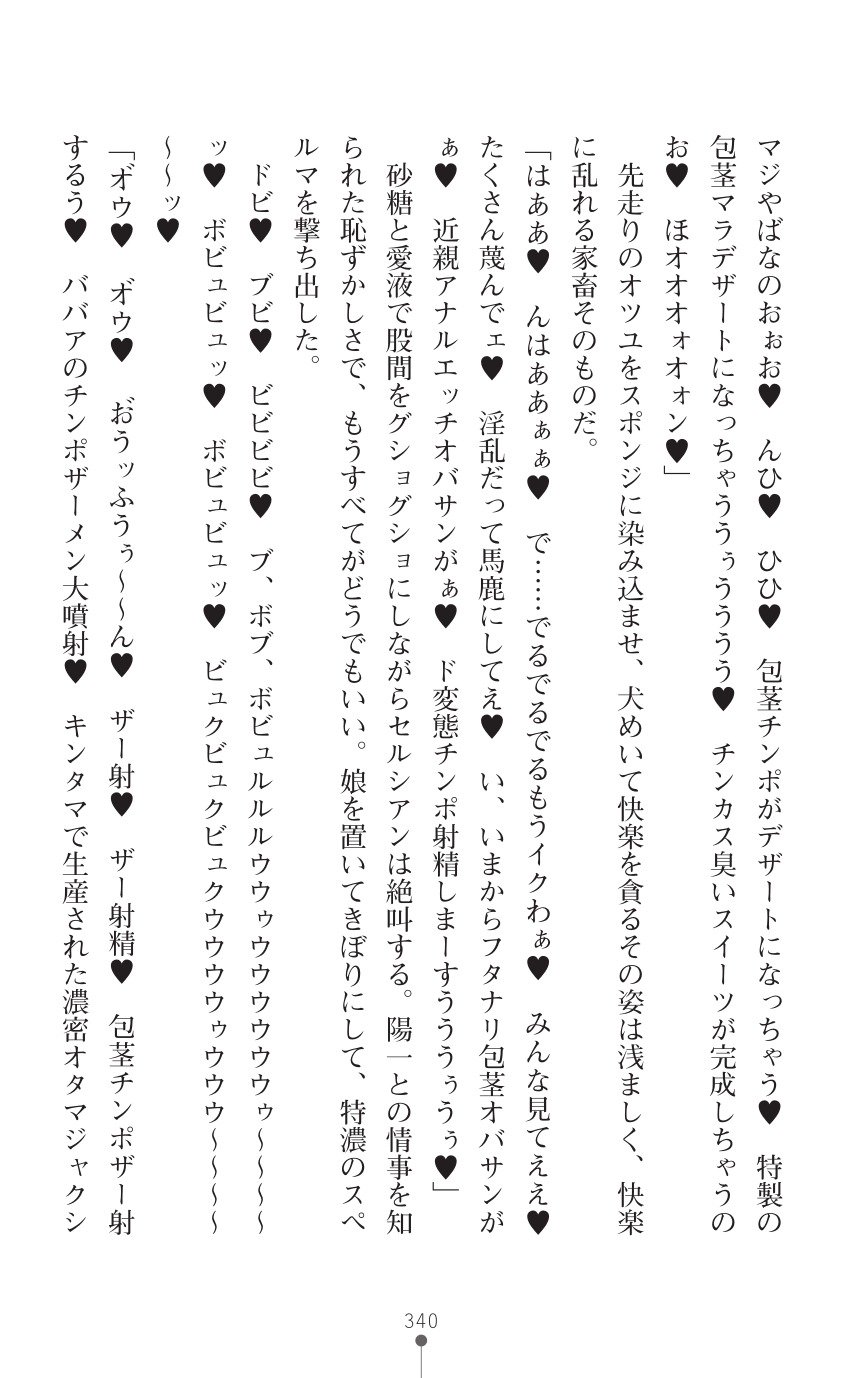 マジやばなのおぉお♥　んひ♥　ひひ♥　包茎チンポがデザートになっちゃう♥　特製の
包茎マラデザートになっちゃううぅうううう♥　チンカス臭いスイーツが完成しちゃうの
お♥　ほオオオォオォン♥」
　先走りのオツユをスポンジに染み込ませ、犬めいて快楽を貪るその姿は浅ましく、快楽
に乱れる家畜そのものだ。
「はああ♥　んはああぁぁ♥　で……でるでるでるもうイクわぁ♥　みんな見てええ♥
たくさん蔑んでェ♥　淫乱だって馬鹿にしてえ♥　い、いまからフタナリ包茎オバサンが
ぁ♥　近親アナルエッチオバサンがぁ♥　ド変態チンポ射精しまーすうううぅうぅ♥」
　砂糖と愛液で股間をグショグショにしながらセルシアンは絶叫する。陽一との情事を知
られた恥ずかしさで、もうすべてがどうでもいい。娘を置いてきぼりにして、特濃のスペ
ルマを撃ち出した。
　ドビ♥　ブビ♥　ビビビビ♥　ブ、ボブ、ボビュルルルウウゥウウウウウウゥ〜〜〜〜
ッ♥　ボビュビュッ♥　ボビュビュッ♥　ビュクビュクビュクウウウウゥウウウ〜〜〜〜
〜〜ッ♥
「オ゛ウ♥　オ゛ウ♥　お゛うッふうぅ〜〜ん♥　ザー射♥　ザー射精♥　包茎チンポザー射
するう♥　ババアのチンポザーメン大噴射♥　キンタマで生産された濃密オタマジャクシ
340